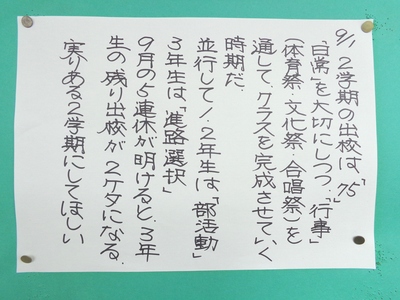 9/1 2学期の出校は、「75」
「日常」を大切にしつつ、「行事」
(体育祭・文化祭・合唱祭)を
通して、クラスを完成させていく
時期だ.
並行して1、2年生は「部活動」
3年生は「進路選択」
9月の5連休が明けると、3年
生の残り出校が、2ケタになる.
実りある2学期にしてほしい